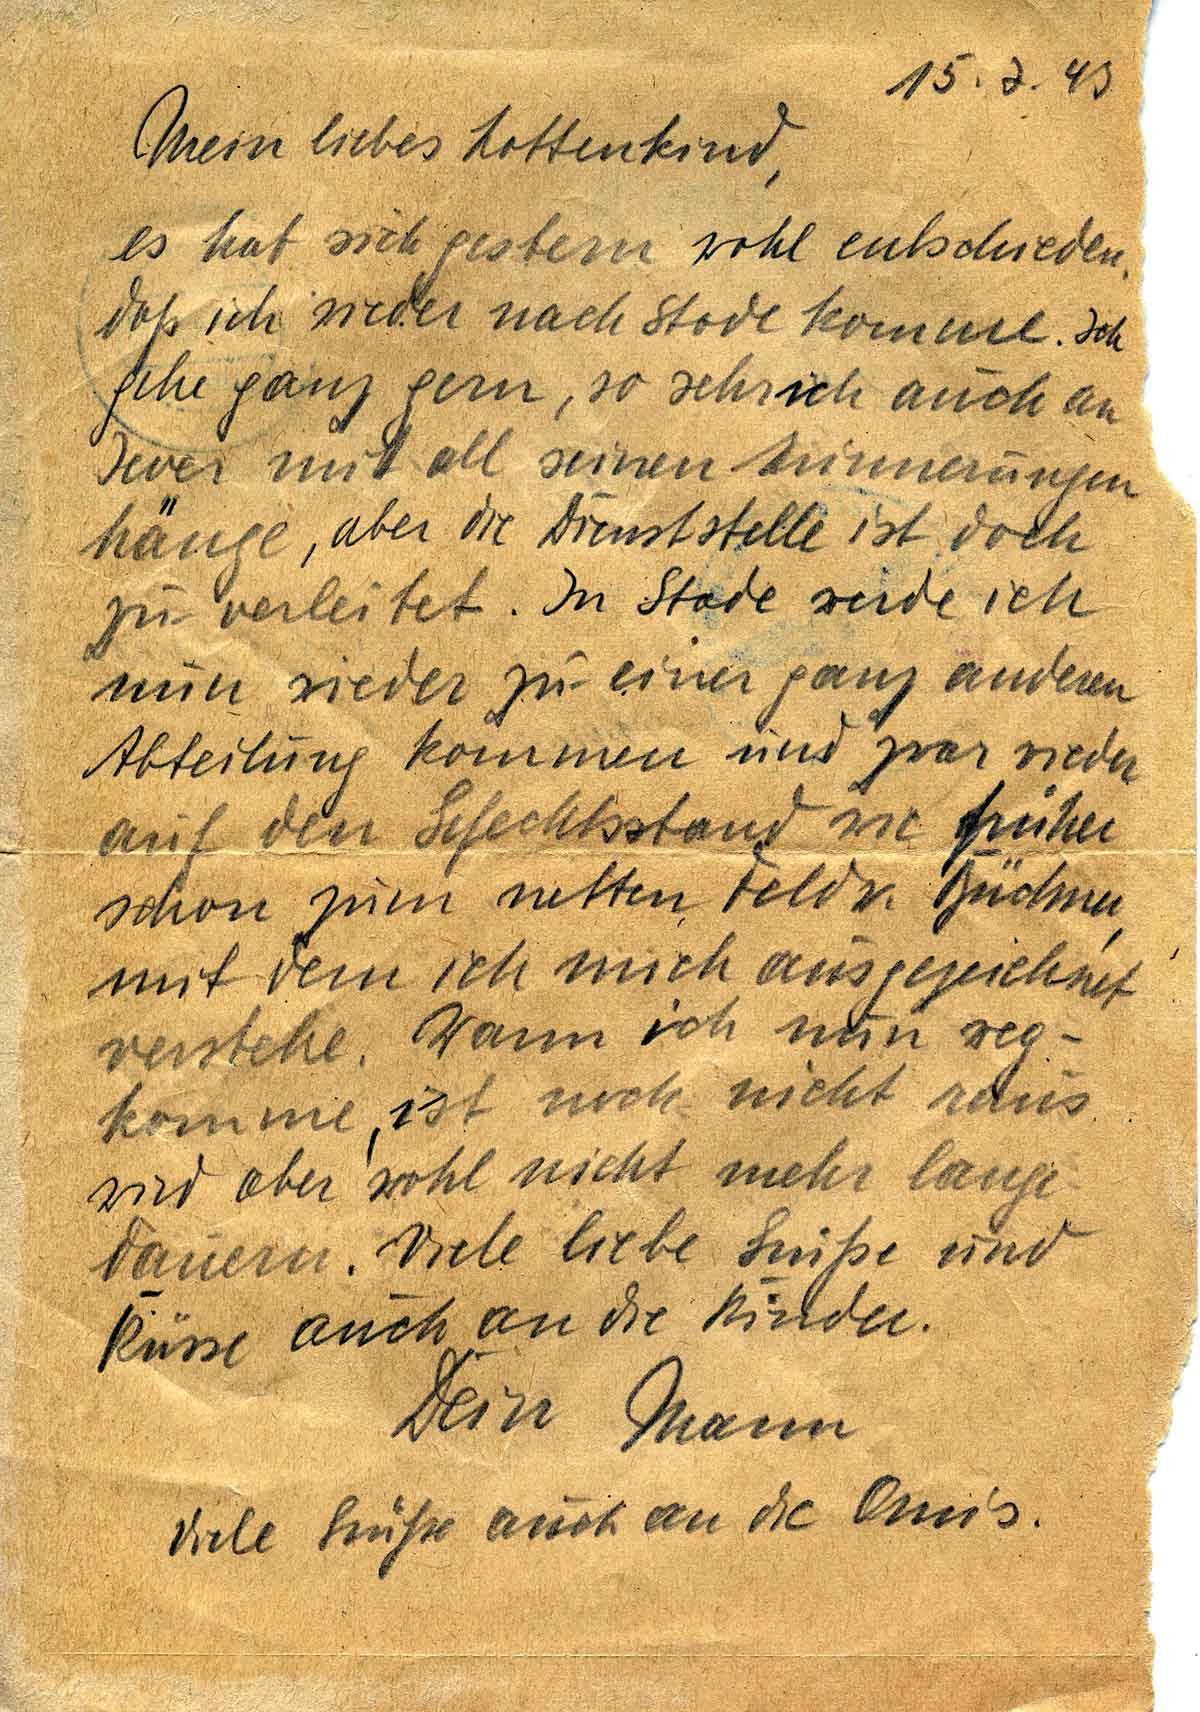 15. 2. 43
Mein liebes Lottenkind,
es hat sich gestern wohl entschieden,
daß ich wieder nach Stade komme. Ich
gehe ganz gern, so sehr ich auch an
Jever mit all seinen Erinnerungen
hänge, aber die Dienststelle ist doch
zu verleitet. In Stade werde ich
nun wieder zu einer ganz anderen
Abteilung kommen und zwar wieder
auf den Gefechtsstand wie früher
schon zum netten Feldw. Büchner,
mit dem ich mich ausgezeichnet
verstehe. Wann ich nun weg-
komme, ist noch nicht raus
wird aber wohl nicht mehr lange
dauern. Viele liebe Grüße und
Küsse auch an die Kinder.
Dein Mann
Viele Grüße auch an die Omis.